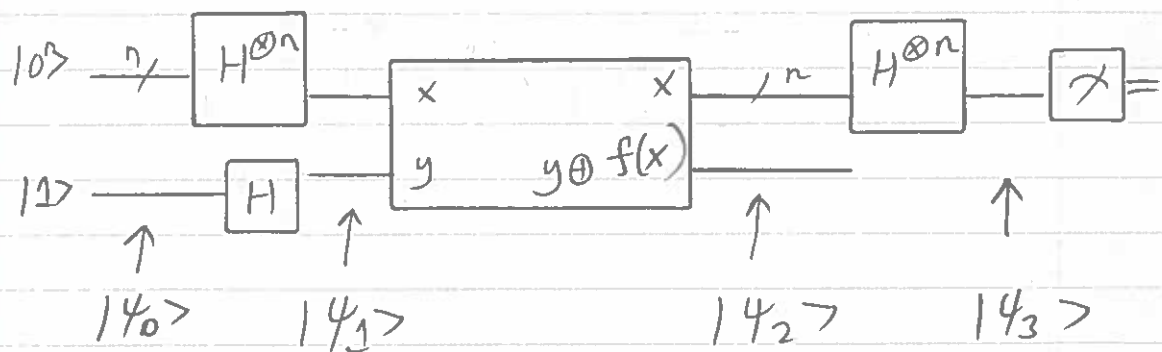 |0> n H⊗n x x n H⊗n
|1> H y y⊕f(x)
|ψ0> |ψ1> |ψ2> |ψ3>